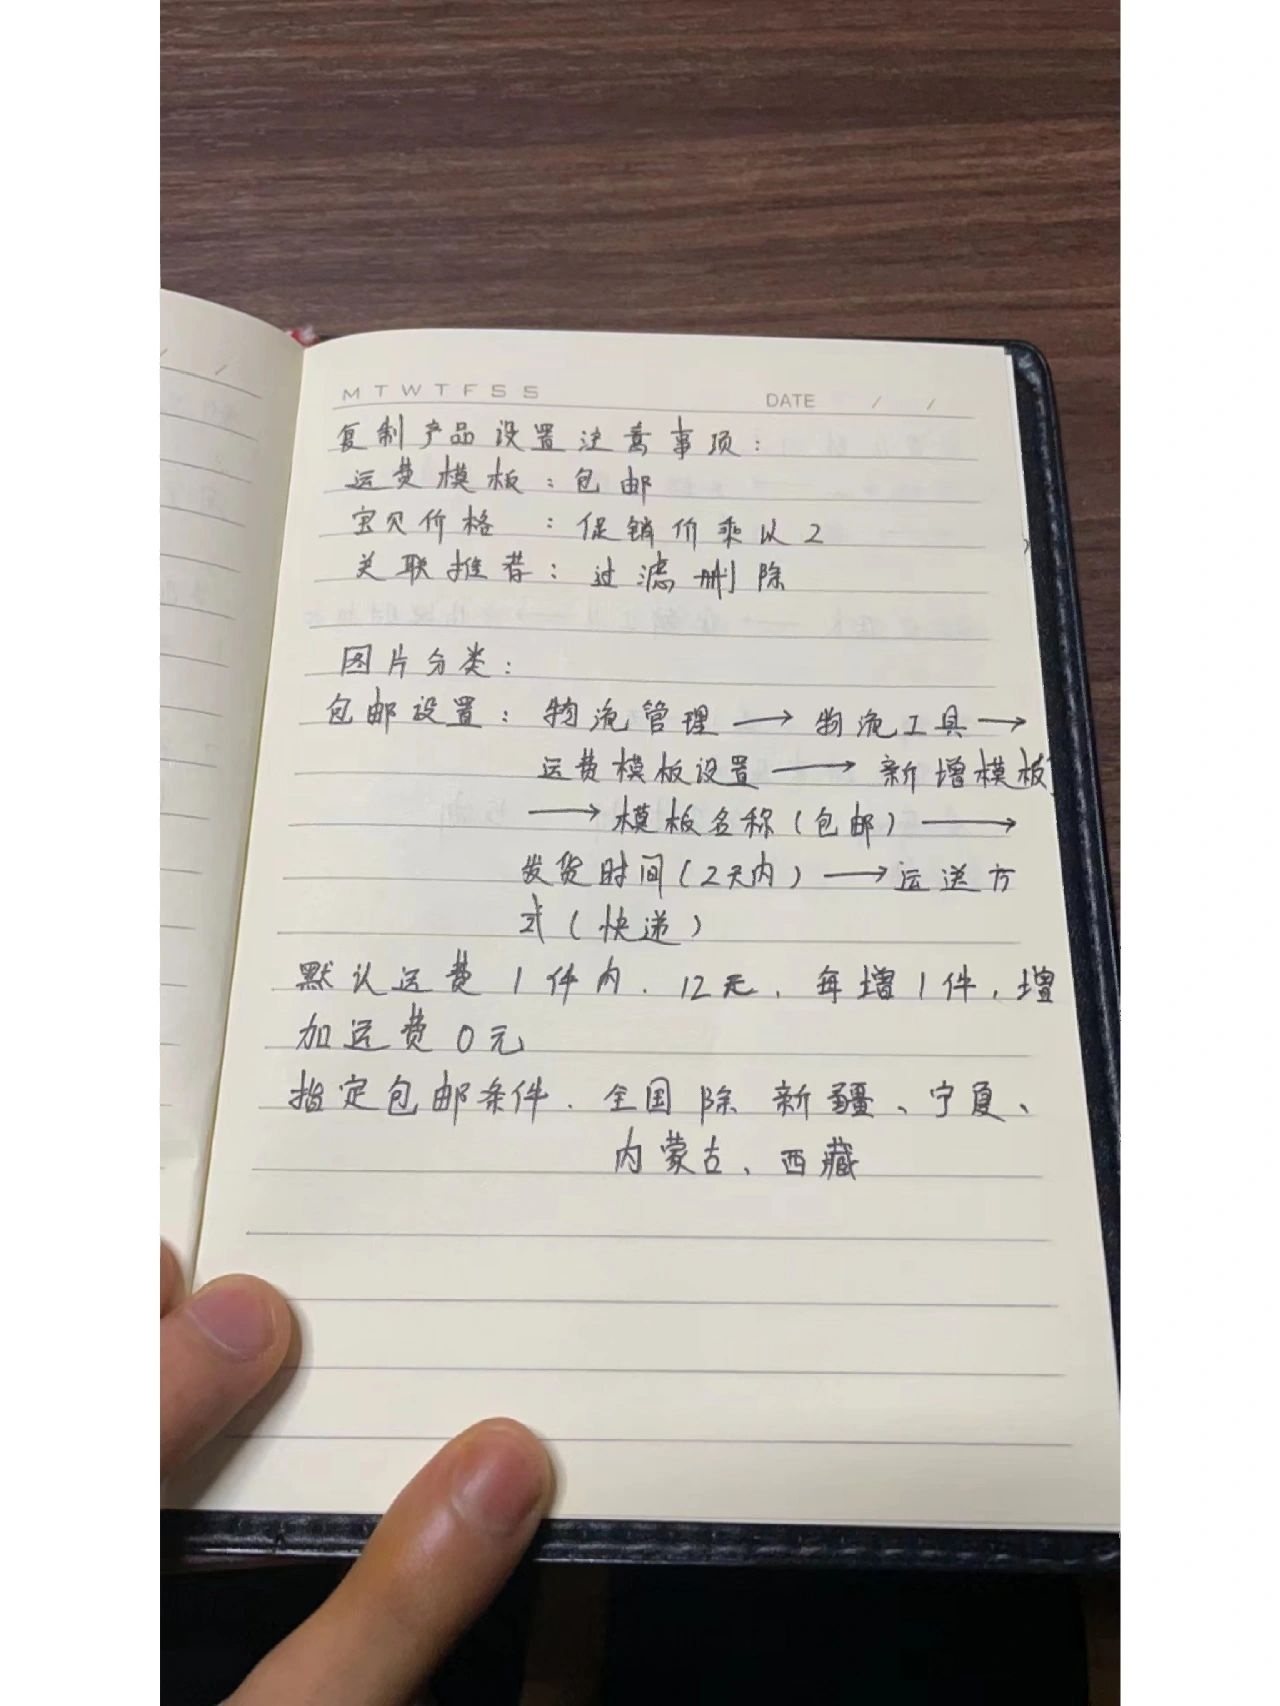 M T W T F S S DATE / /
复制产品设置注意事项：
运费模板：包邮
宝贝价格：促销价乘以2
关联推荐：过滤删除
图片分类：
包邮设置：物流管理→物流工具→
运费模板设置→新增模板
→模板名称(包邮)→
发货时间(2天内)→运送方
式(快递)
默认运费1件内.12元,每增1件,增
加运费0元
指定包邮条件.全国除新疆、宁夏、
内蒙古、西藏